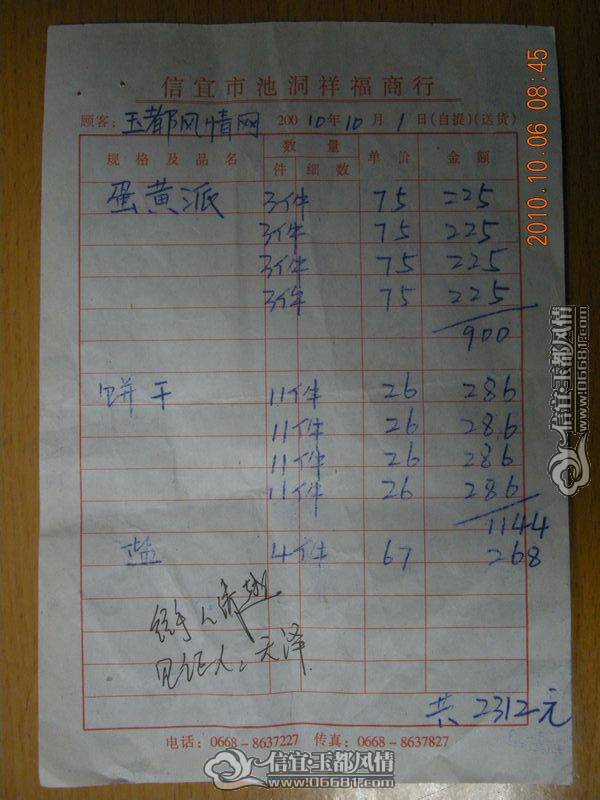 信宜市池洞祥福商行
顾客: 玉都风情网 20010年10月1日(自提)(送货)
规格及品名 数量 单价 金额
件 细数
蛋黄派 3件 75 225
3件 75 225
3件 75 225
3件 75 225
900
饼干 11件 26 286
11件 26 286
11件 26 286
11件 26 286
1144
盐 4件 67 268
经手人
见证人:天泽
共2312元
电话:0668-8637227 传真:0668-8637827
2010.10.06 08:45
信宜·玉都风情
www.06681.com
信宜·玉都风情
www.06681.com